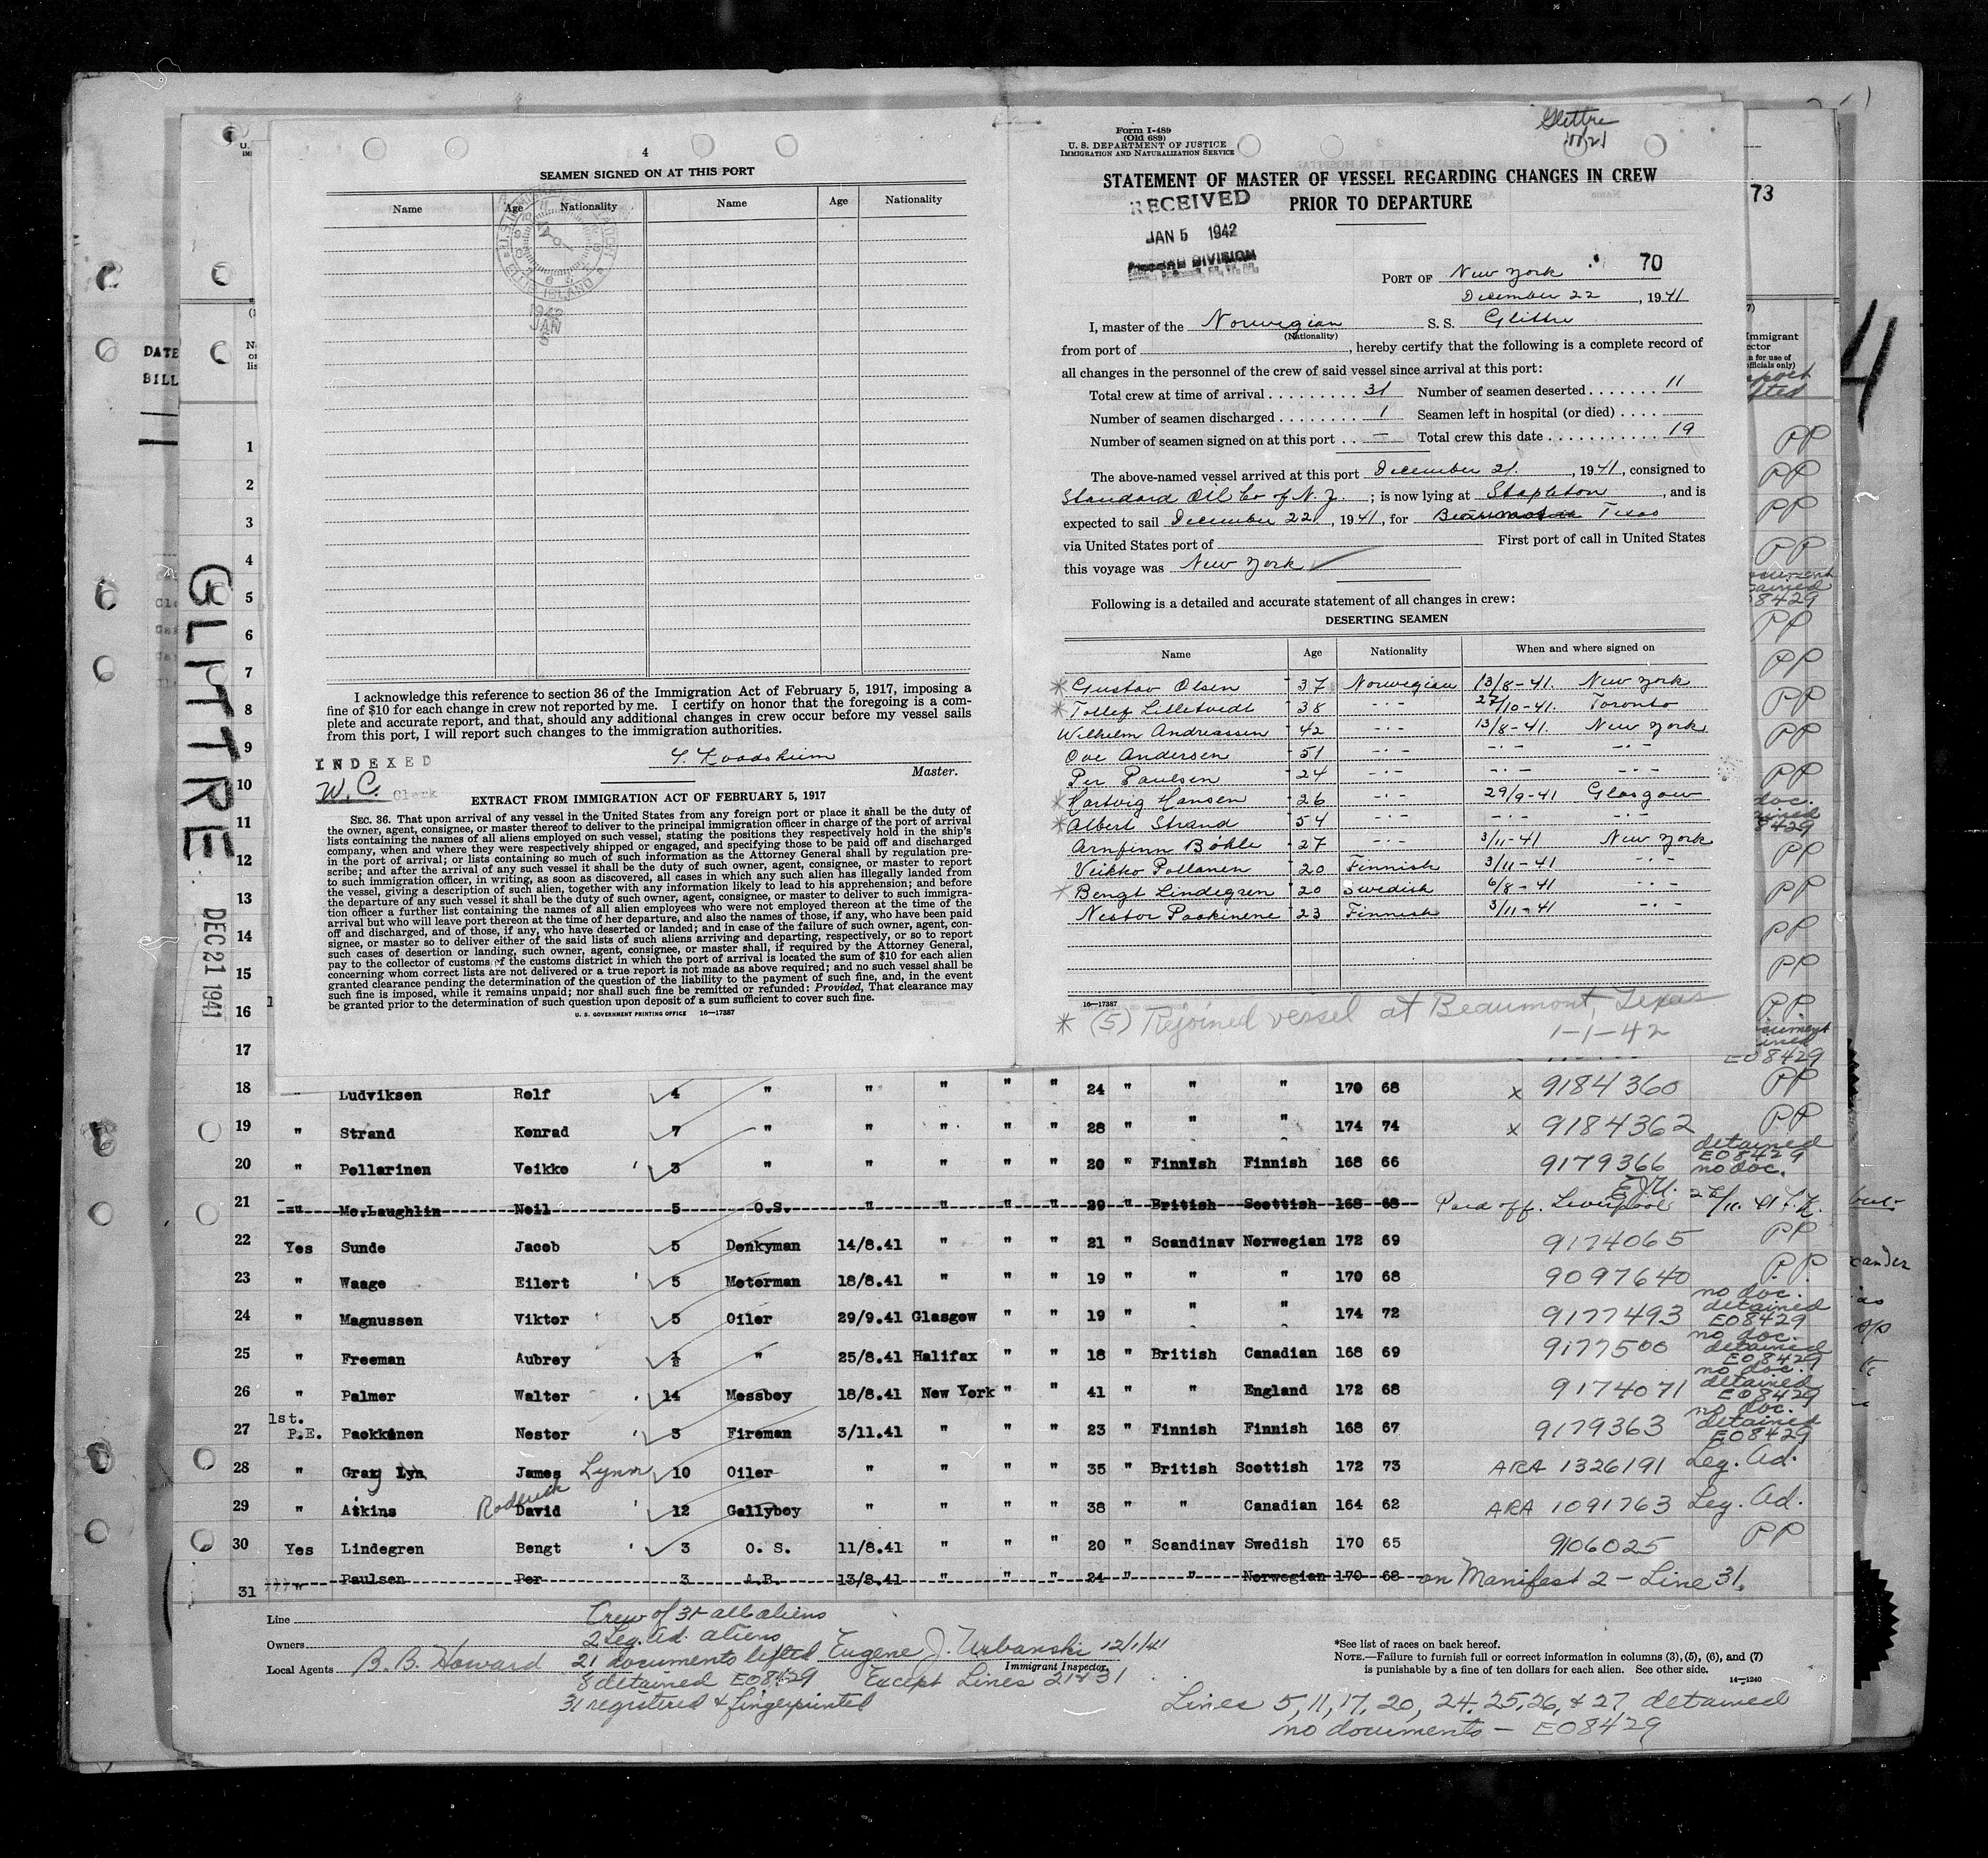 Glittre
4
SEAMEN SIGNED ON AT THIS PORT
Name Age Nationality Name Age Nationality
ELLIS ISLAND
1942
JAN
I acknowledge this reference to section 36 of the Immigration Act of February 5, 1917, imposing a
fine of $10 for each change in crew not reported by me. I certify on honor that the foregoing is a com-
plete and accurate report, and that, should any additional changes in crew occur before my vessel sails
from this port, I will report such changes to the immigration authorities.
INDEXED
Master.
W. C. Clerk
EXTRACT FROM IMMIGRATION ACT OF FEBRUARY 5, 1917
SEC. 36. That upon arrival of any vessel in the United States from any foreign port or place it shall be the duty of
the owner, agent, consignee, or master thereof to deliver to the principal immigration officer in charge of the port of arrival
lists containing the names of all aliens employed on such vessel, stating the positions they respectively hold in the ship's
company, when and where they were respectively shipped or engaged, and specifying those to be paid off and discharged
in the port of arrival; or lists containing so much of such information as the Attorney General shall by regulation pre-
scribe; and after the arrival of any such vessel it shall be the duty of such owner, agent, consignee, or master to report
to such immigration officer, in writing, as soon as discovered, all cases in which any such alien has illegally landed from
the vessel, giving a description of such alien, together with any information likely to lead to his apprehension; and before
the departure of any such vessel it shall be the duty of such owner, agent, consignee, or master to deliver to such immigra-
tion officer a further list containing the names of all alien employees who were not employed thereon at the time of the
arrival but who will leave port thereon at the time of her departure, and also the names of those, if any, who have been paid
off and discharged, and of those, if any, who have deserted or landed; and in case of the failure of such owner, agent, con-
signee, or master so to deliver either of the said lists of such aliens arriving and departing, respectively, or so to report
such cases of desertion or landing, such owner, agent, consignee, or master shall, if required by the Attorney General,
pay to the collector of customs of the customs district in which the port of arrival is located the sum of $10 for each alien
concerning whom correct lists are not delivered or a true report is not made as above required; and no such vessel shall be
granted clearance pending the determination of the question of the liability to the payment of such fine, and, in the event
such fine is imposed, while it remains unpaid; nor shall such fine be remitted or refunded: Provided, That clearance may
be granted prior to the determination of such question upon deposit of a sum sufficient to cover such fine.
U. S. GOVERNMENT PRINTING OFFICE 16—17387
Form I-489
(Old 689)
U. S. DEPARTMENT OF JUSTICE
IMMIGRATION AND NATURALIZATION SERVICE
STATEMENT OF MASTER OF VESSEL REGARDING CHANGES IN CREW
PRIOR TO DEPARTURE
RECEIVED
JAN 5 1942
DIVISION
PORT OF New York 70
December 22, 1941
I, master of the Norwegian S. S. Glittre
(Nationality)
from port of , hereby certify that the following is a complete record of
all changes in the personnel of the crew of said vessel since arrival at this port:
Total crew at time of arrival 31 Number of seamen deserted 11
Number of seamen discharged 1 Seamen left in hospital (or died)
Number of seamen signed on at this port — Total crew this date 19
The above-named vessel arrived at this port December 21. , 1941, consigned to
Standard Oil Co of N. J. ; is now lying at Stapleton , and is
expected to sail December 22, 1941, for Texas
via United States port of First port of call in United States
this voyage was New York
Following is a detailed and accurate statement of all changes in crew:
DESERTING SEAMEN
Name Age Nationality When and where signed on
* Gustav Olsen 37 Norwegian 13/8-41. New York
* Tollef Lilletvedt 38 -·- 27/10-41. Toronto
Wilhelm Andreassen 42 -·- 13/8-41. New York
Ove Andersen 51 -·- -·- -·-
Per Paulsen 24 -·- -·- -·-
* Hartvig Hansen 26 -·- 29/9-41 Glasgow
* Albert Strand 54 -·- -·- -·-
Arnfinn Böhle 27 -·- 3/11-41 New York
Veikko Pollanen 20 Finnish 3/11-41 -·-
* Bengt Lindegren 20 Swedish 6/8-41 -·-
Nestor Paakinene 23 Finnish 3/11-41 -·-
16—17387
* (5) Rejoined vessel at Beaumont, Texas
1-1-42
73
4
DATE
BILL
GLITTRE
DEC 21 1941
1
2
3
4
5
6
7
8
9
10
11
12
13
14
15
16
17
18 Ludviksen Rolf 4 " " " " " 24 " " " 170 68 x 9184360 PP
19 " Strand Konrad 7 " " " " " 28 " " " 174 74 x 9184362 PP
20 " Pellarinen Veikko 3 " " " " " 20 " Finnish Finnish 168 66 9179366 detained E08429 no doc.
21 " Mc.Laughlin Neil 5 O.S. " " " " 29 " British Scottish 168 68 Paid off. Liverpool
22 Yes Sunde Jacob 5 Donkyman 14/8.41 " " " 21 " Scandinav Norwegian 172 69 9174065 PP
23 " Waage Eilert 5 Motorman 18/8.41 " " " 19 " " " 170 68 9097640 P.P.
24 " Magnussen Viktor 5 Oiler 29/9.41 Glasgow " " 19 " " " 174 72 9177493 no doc. detained E08429
25 " Freeman Aubrey ½ " 25/8.41 Halifax " " 18 " British Canadian 168 69 9177500 no doc. detained E08429
26 " Palmer Walter 14 Messboy 18/8.41 New York " " 41 " " England 172 68 9174071 no doc. detained E08429
27 1st. P.E. Paokkönen Nester 3 Fireman 3/11.41 " " " 23 " Finnish Finnish 168 67 9179363 no doc. detained E08429
28 " Gray Lyn James Lynn 10 Oiler " " " " 35 " British Scottish 172 73 ARA 1326191 Leg. Ad.
29 " Atkins Roderick David 12 Gallyboy " " " " 38 " " Canadian 164 62 ARA 1091763 Leg. Ad.
30 Yes Lindegren Bengt 3 O. S. 11/8.41 " " " 20 " Scandinav Swedish 170 65 9106025 PP
31 " Paulsen Per 3 A.B. 13/8.41 " " " 24 " " Norwegian 170 68 on Manifest 2 - Line 31.
Line
Owners
Local Agents B. B. Howard
Crew of 31 all aliens
2 Leg. Ad. aliens
21 documents lifted
8 detained E08429
31 registered & fingerprinted
Eugene J. Urbanski 12/1/41
Immigrant Inspector.
Except Lines 21 & 31
*See list of races on back hereof.
NOTE.—Failure to furnish full or correct information in columns (3), (5), (6), and (7)
is punishable by a fine of ten dollars for each alien. See other side.
14—1240
Lines 5, 11, 17, 20, 24, 25, 26, & 27, detained
no documents — E08429